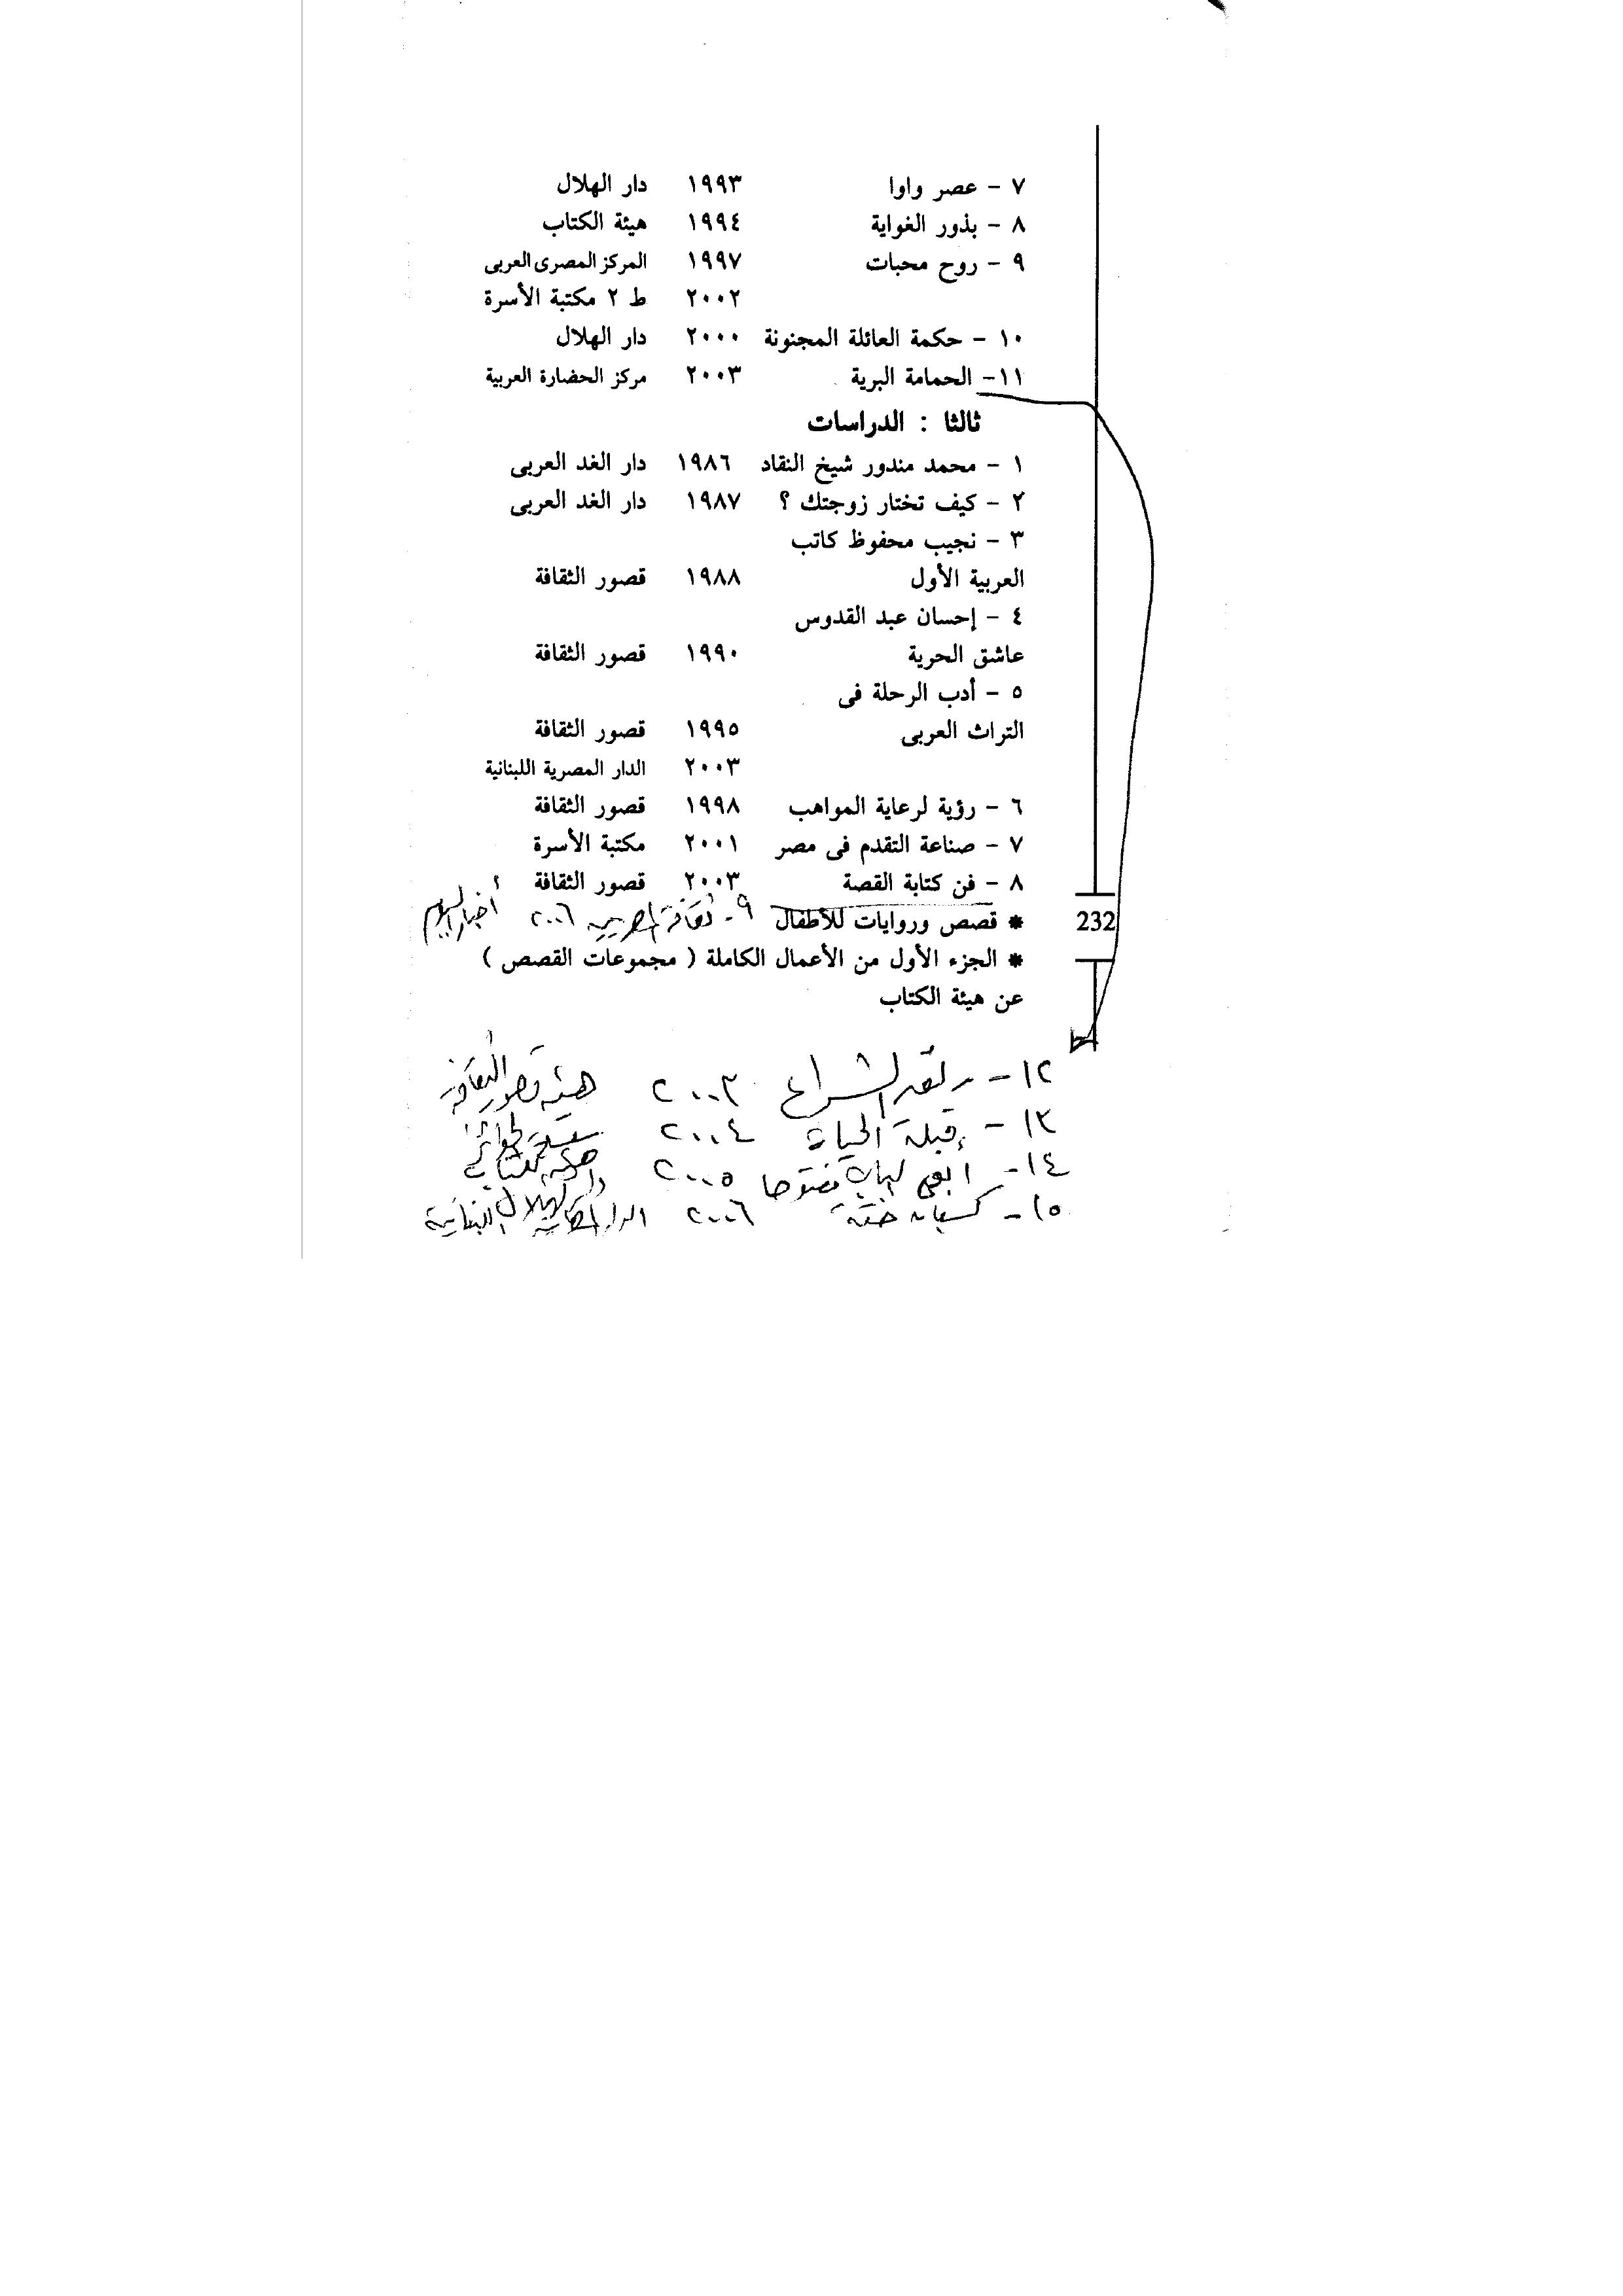 ٧ - عصر واوا ١٩٩٣ دار الهلال
٨ - بذور الغواية ١٩٩٤ هيئة الكتاب
٩ - روح محبات ١٩٩٧ المركز المصرى العربى
٢٠٠٢ ط ٢ مكتبة الأسرة
١٠ - حكمة العائلة المجنونة ٢٠٠٠ دار الهلال
١١- الحمامة البرية ٢٠٠٣ مركز الحضارة العربية
ثالثا : الدراسات
١ - محمد مندور شيخ النقاد ١٩٨٦ دار الغد العربى
٢ - كيف تختار زوجتك ؟ ١٩٨٧ دار الغد العربى
٣ - نجيب محفوظ كاتب
العربية الأول ١٩٨٨ قصور الثقافة
٤ - إحسان عبد القدوس
عاشق الحرية ١٩٩٠ قصور الثقافة
٥ - أدب الرحلة فى
التراث العربى ١٩٩٥ قصور الثقافة
٢٠٠٣ الدار المصرية اللبنانية
٦ - رؤية لرعاية المواهب ١٩٩٨ قصور الثقافة
٧ - صناعة التقدم فى مصر ٢٠٠١ مكتبة الأسرة
٨ - فن كتابة القصة ٢٠٠٣ قصور الثقافة
٩- ثقافة المصريين ٢٠٠٦ أخبار اليوم
* قصص وروايات للأطفال
232
* الجزء الأول من الأعمال الكاملة ( مجموعات القصص )
عن هيئة الكتاب
١٢- رتق الشراع ٢٠٠٣ هيئة قصور الثقافة
١٣- قبلة الحياة ٢٠٠٤
١٤- ابقى الباب مفتوحا ٢٠٠٥ دار الهلال
١٥- كسبان جنة ٢٠٠٦ الدار المصرية اللبنانية